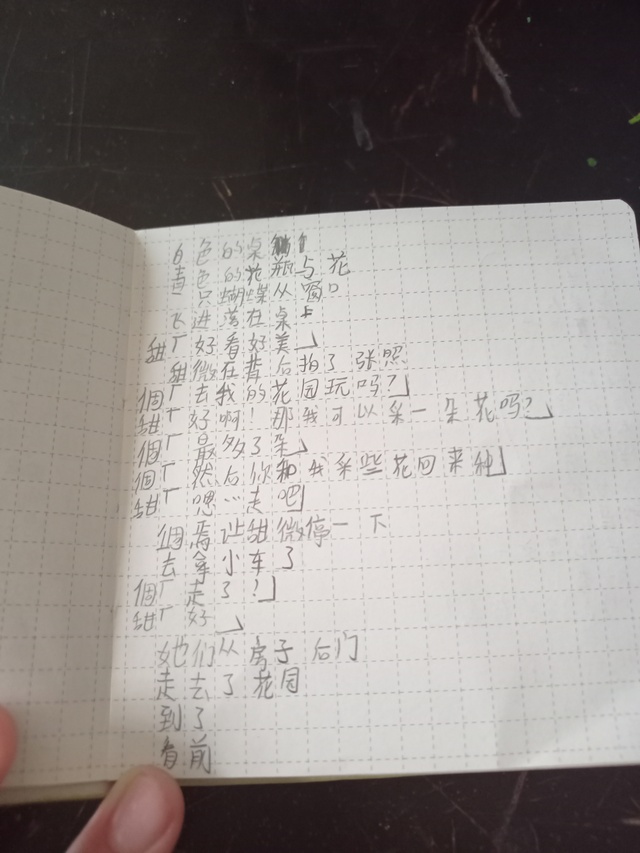 白色的桌
青色的花瓶与花
一只蝴蝶从窗口
飞进落在桌上
甜「好看好美」
甜微在昔后拍了张照
個「去我的花园玩吗?」
甜「好啊!那我可以采一朵花吗?」
個「最多了朵」
個「然后你和我采些花回来种」
甜「嗯…走吧」
個焉让甜微停一下
去拿小车了
個「走了?」
甜「好」
她们从房子后门
走去了花园
到了
看前